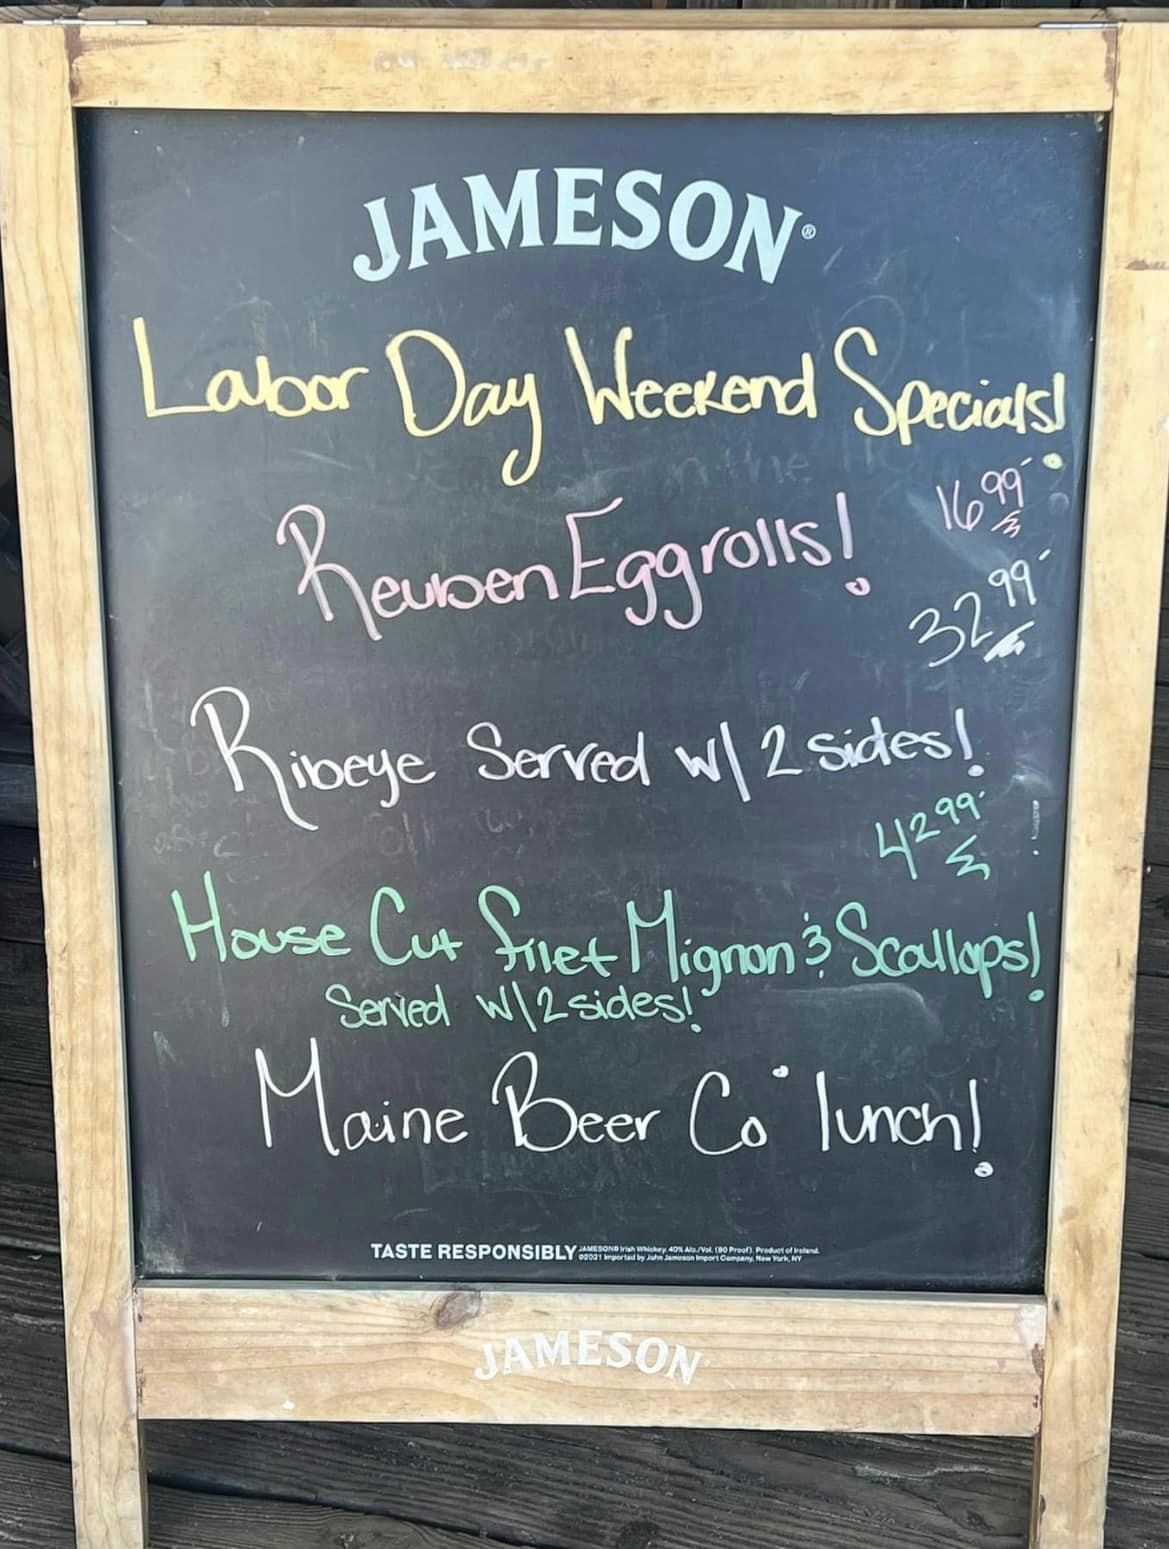 JAMESON®
Labor Day Weekend Specials!
16 99
Reuben Eggrolls!
32 99
Ribeye Served w/ 2 sides!
42 99
House Cut filet Mignon & Scallops!
Served w/ 2 sides!
Maine Beer Co. lunch!
TASTE RESPONSIBLY JAMESON® Irish Whiskey. 40% Alc./Vol. (80 Proof). Product of Ireland.
©2021 Imported by John Jameson Import Company, New York, NY
JAMESON